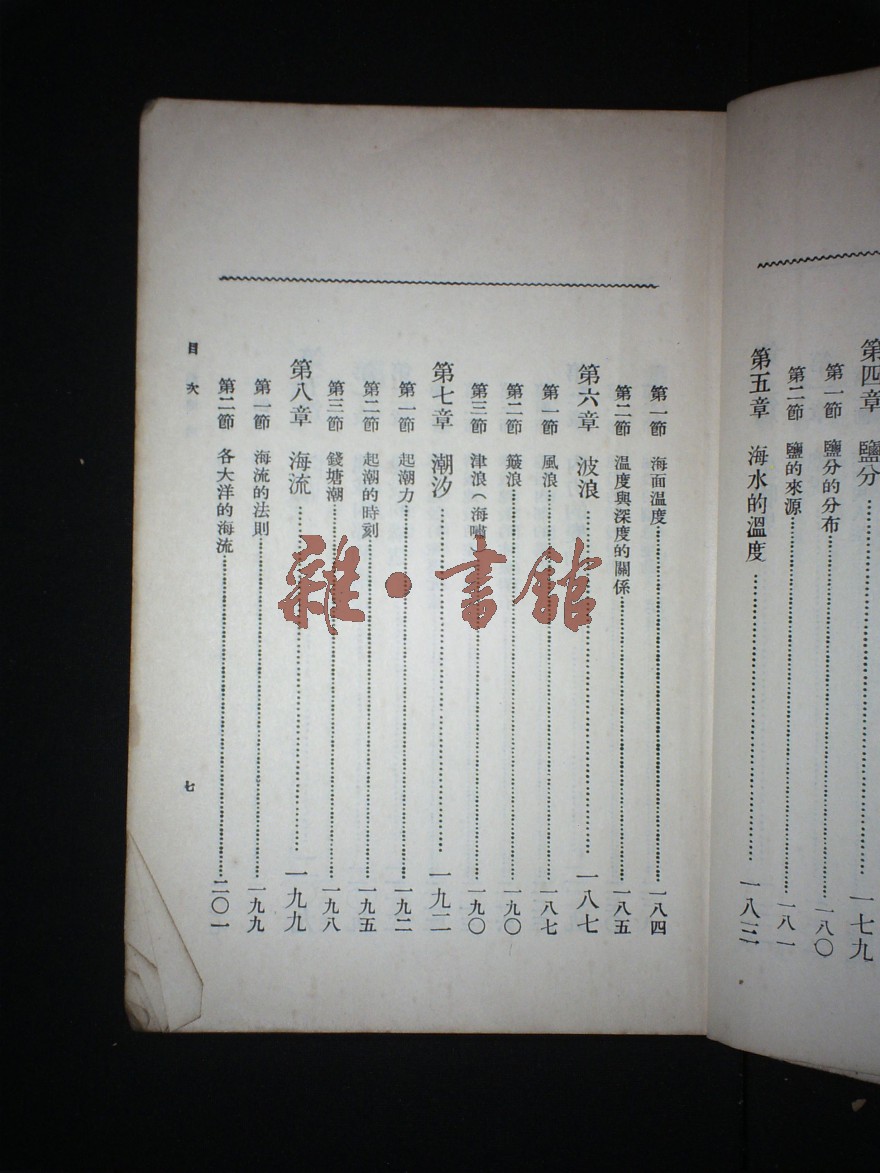 第四章　鹽分……一七九
第一節　鹽分的分布……一八〇
第二節　鹽的來源……一八一
第五章　海水的溫度……一八三
第一節　海面溫度……一八四
第二節　溫度與深度的關係……一八五
第六章　波浪……一八七
第一節　風浪……一八七
第二節　簸浪……一九〇
第三節　津浪（海嘯）……一九〇
第七章　潮汐……一九二
第一節　起潮力……一九二
第二節　起潮的時刻……一九五
第三節　錢塘潮……一九八
第八章　海流……一九九
第一節　海流的法則……一九九
第二節　各大洋的海流……二〇一
目次
七
雜·書館